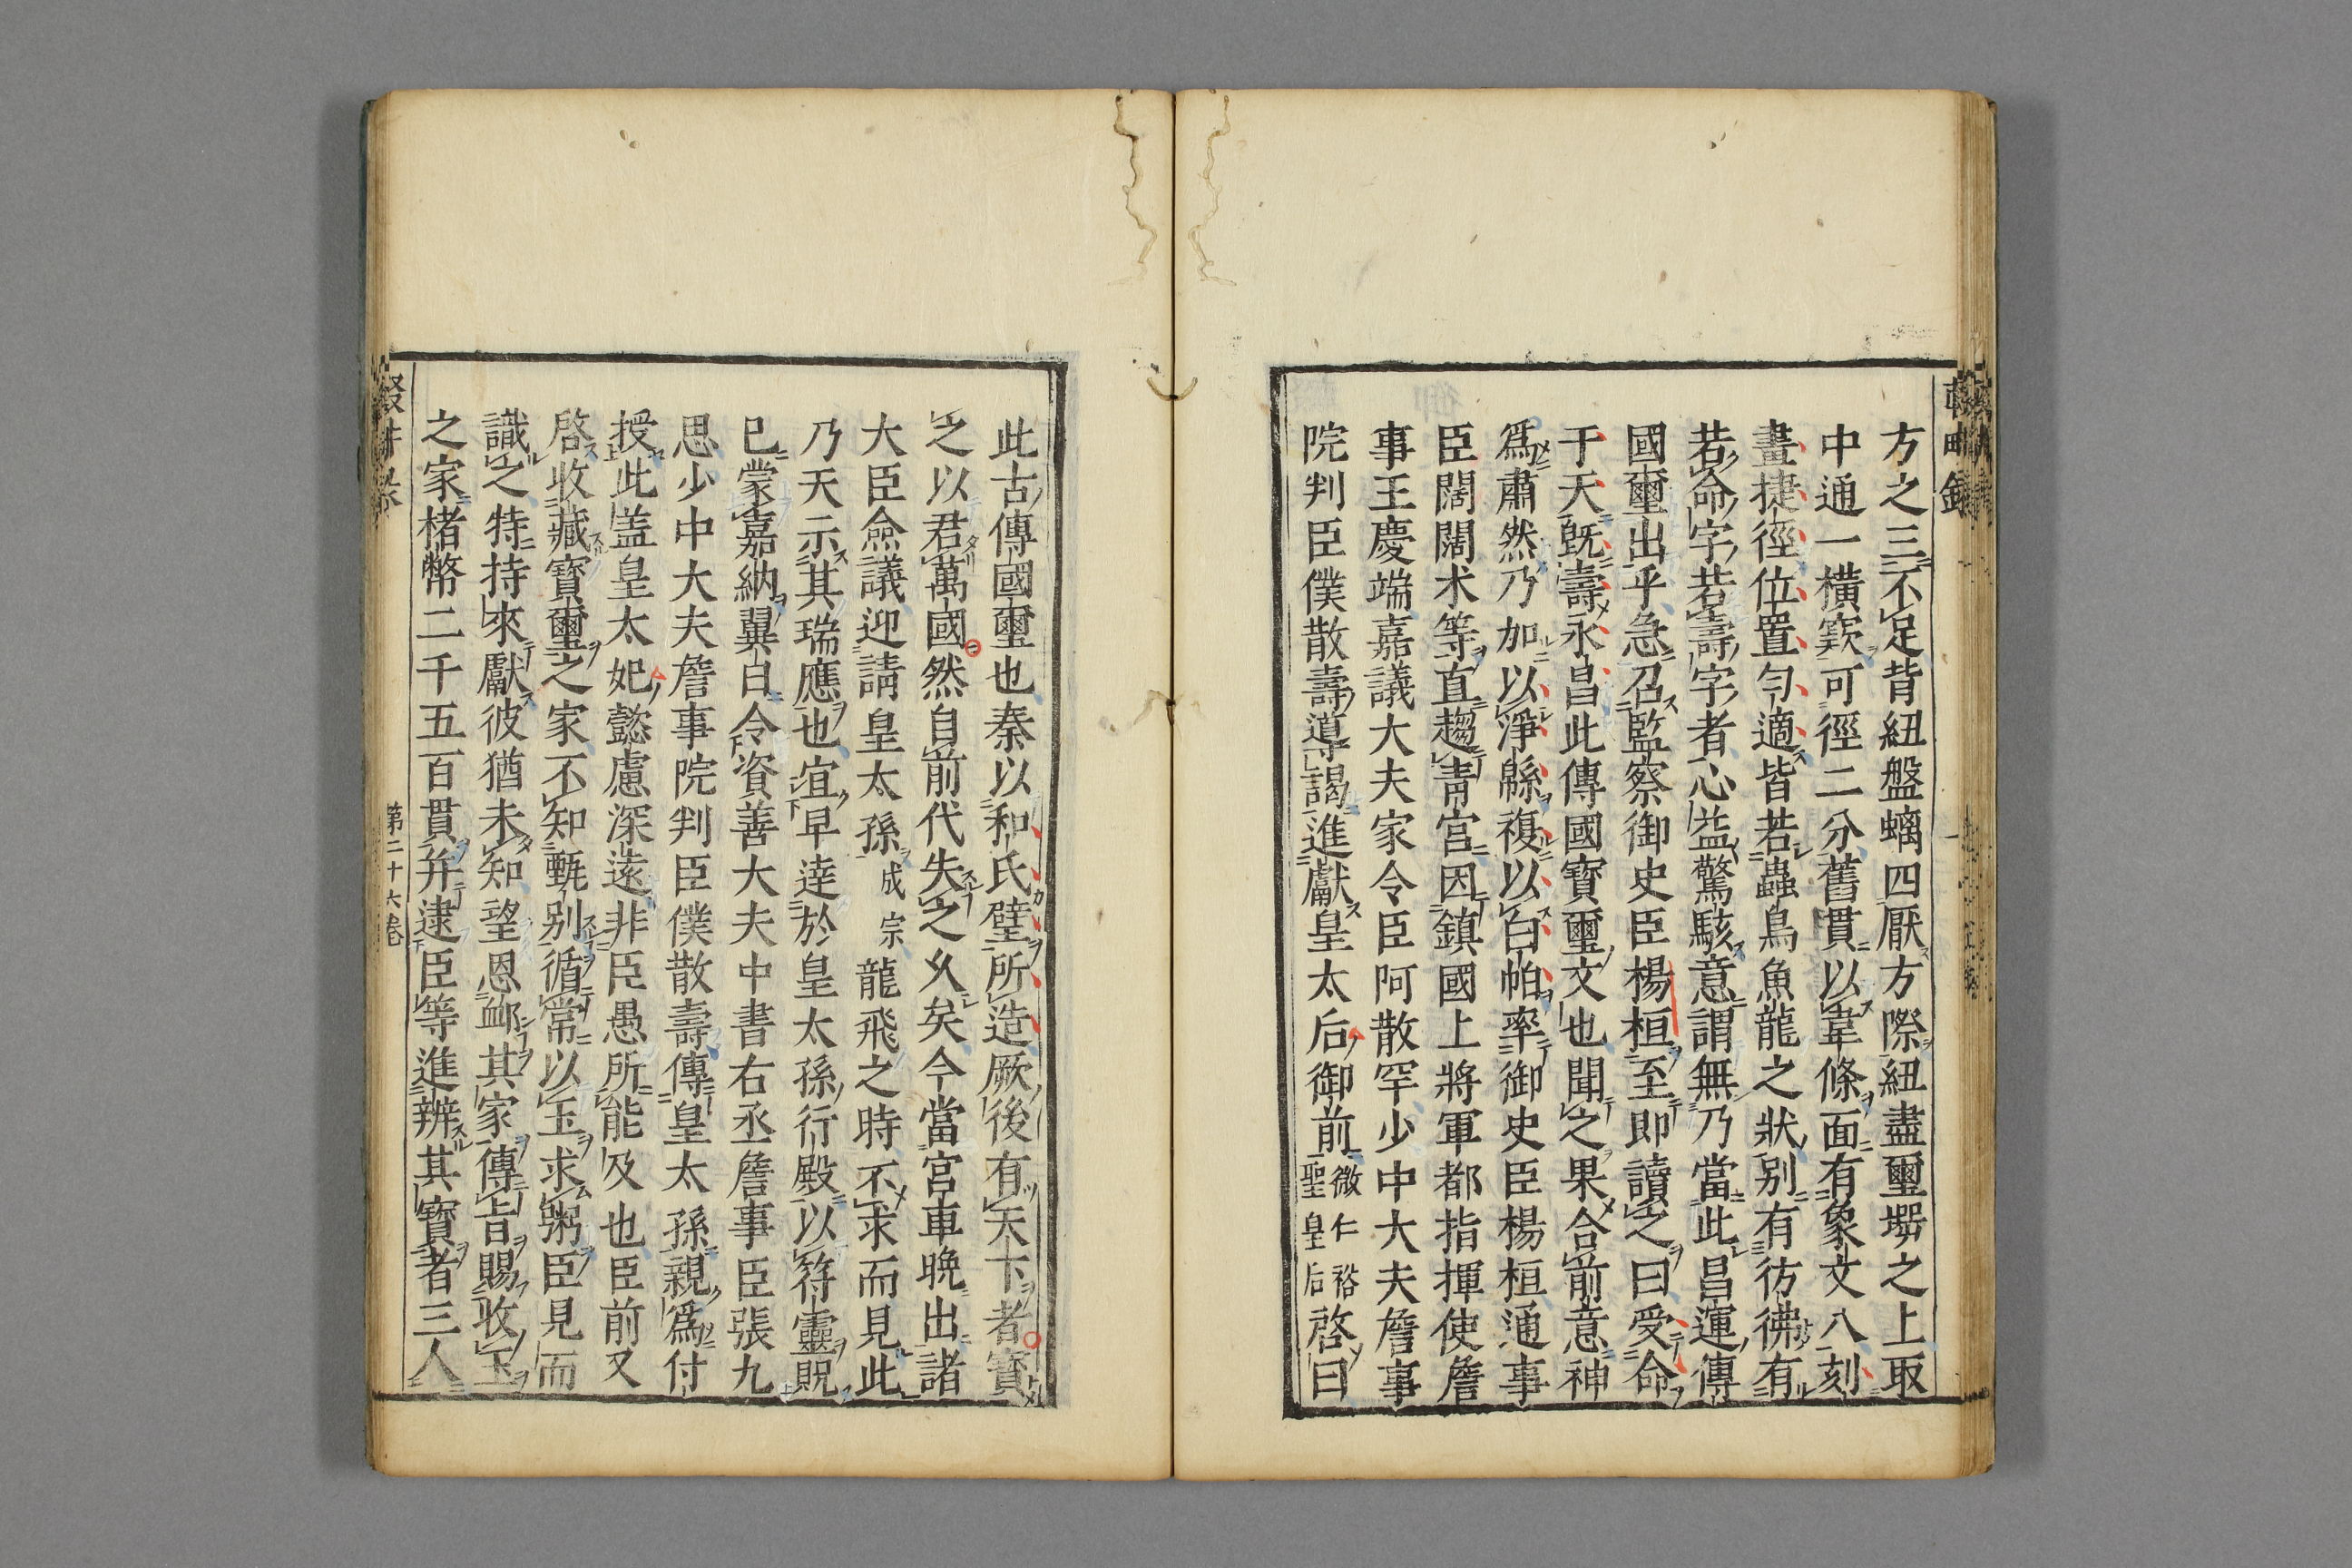 方之三不足背紐盤螭四厭方際紐盡璽堮之上取
中通一横竅可徑二分舊貫以韋條面有象文八刻
畫捷徑位置勻適皆若蟲鳥魚龍之狀别有彷彿有
若命字若壽字者心益驚駭意謂無乃當此昌運傳
國璽出乎急召監察御史臣楊桓至即讀之曰受命
于天既壽永昌此傳國寶璽文也聞之果合前意神
爲肅然乃加以淨緜複以白帕率御史臣楊桓通事
臣闊闊朮等直趨青宫因鎮國上將軍都指揮使詹
事王慶端嘉議大夫家令臣阿散罕少中大夫詹事
院判臣僕散壽導謁進獻皇太后御前微仁裕聖皇后啓曰
此古傳國璽也秦以和氏璧所造厥後有天下者寶
之以君萬國然自前代失之久矣今當宫車晚出諸
大臣僉議迎請皇太孫成宗龍飛之時不求而見此
乃天示其瑞應也宜早達於皇太孫行殿以符靈貺
已蒙嘉納翼日令資善大夫中書右丞詹事臣張九
思少中大夫詹事院判臣僕散壽傳皇太孫親爲付
授此盖皇太妃懿慮深遠非臣愚所能及也臣前又
啓收藏寶璽之家不知甄别循常以玉求粥臣見而
識之特持來獻彼猶未知望恩衈其家傳旨賜收玉
之家楮幣二千五百貫并逮臣等進辨其寶者三人
第二十六卷